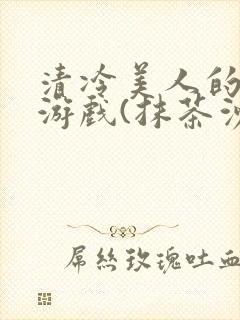 清冷美人的
游戏(抹茶
屌丝玫瑰吐血